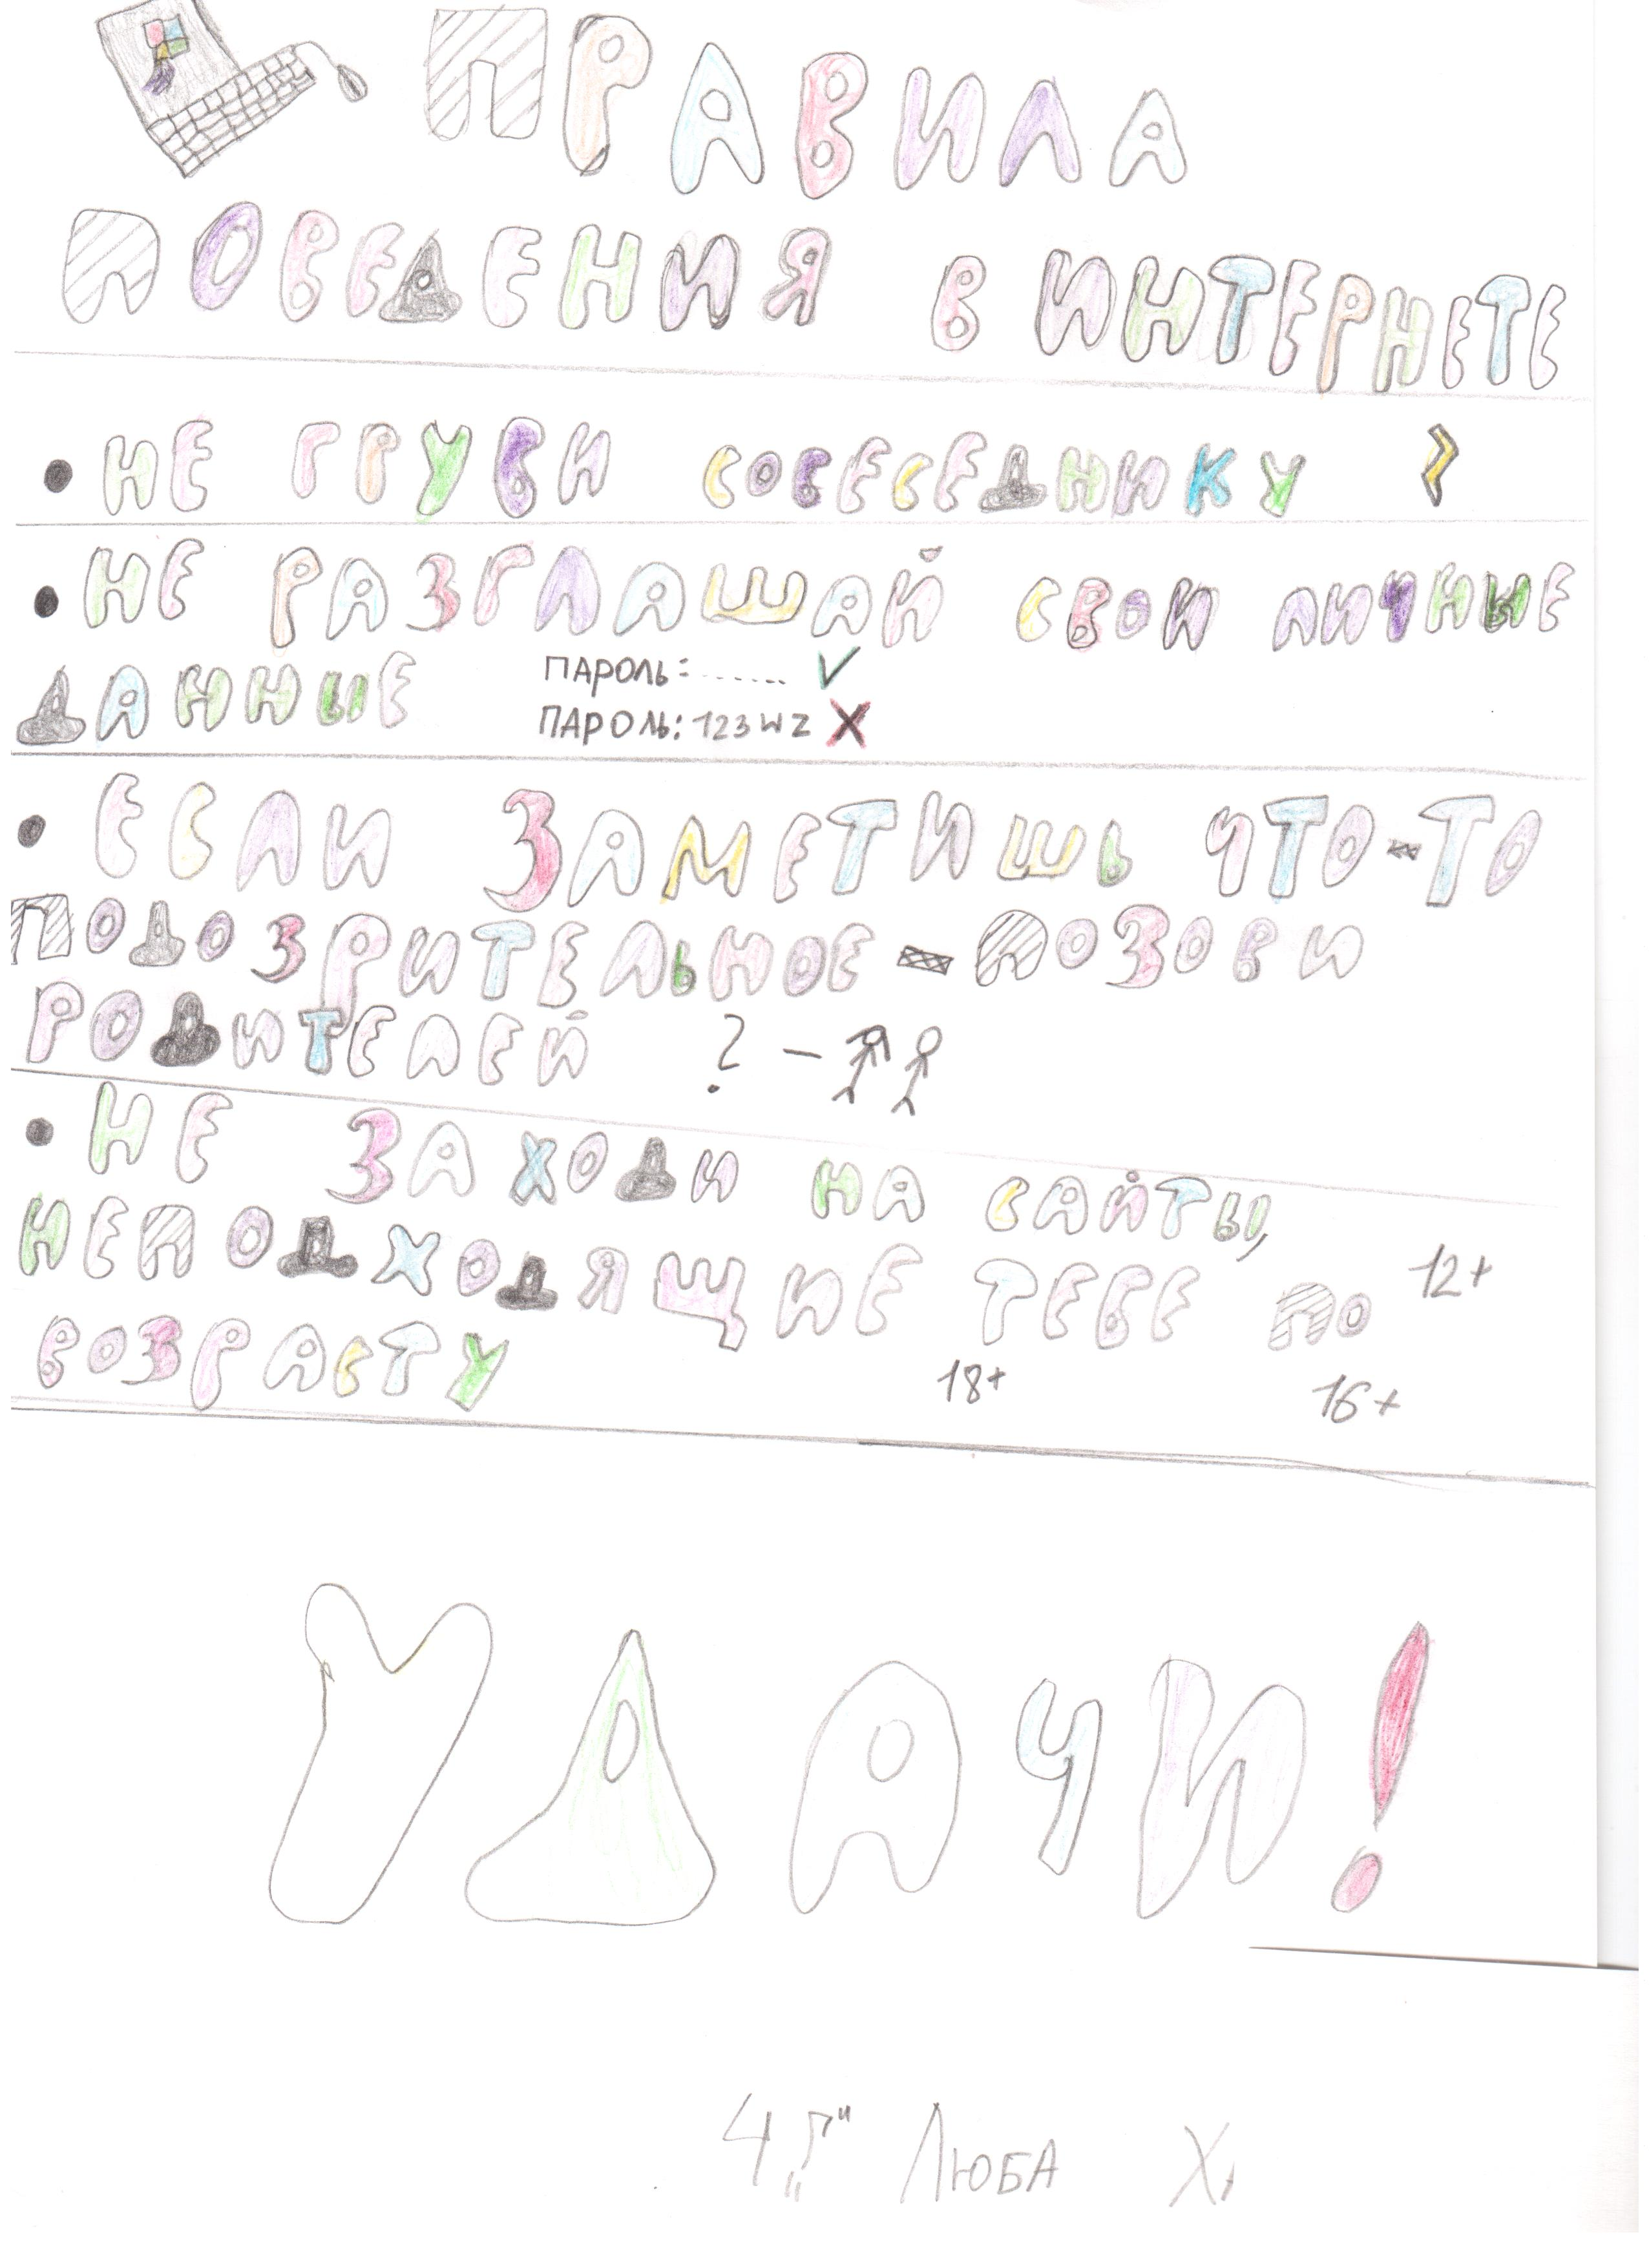 ПРАВИЛА
ПОВЕДЕНИЯ В ИНТЕРНЕТЕ
• НЕ ГРУБИ СОБЕСЕДНИКУ
• НЕ РАЗГЛАШАЙ СВОИ ЛИЧНЫЕ
ДАННЫЕ
ПАРОЛЬ:....... ✓
ПАРОЛЬ: 123WZ X
• ЕСЛИ ЗАМЕТИШЬ ЧТО-ТО
ПОДОЗРИТЕЛЬНОЕ - ПОЗОВИ
РОДИТЕЛЕЙ ? –
• НЕ ЗАХОДИ НА САЙТЫ,
НЕПОДХОДЯЩИЕ ТЕБЕ ПО 12+
ВОЗРАСТУ 18+ 16+
УДАЧИ!
4 „Г" ЛЮБА Х.